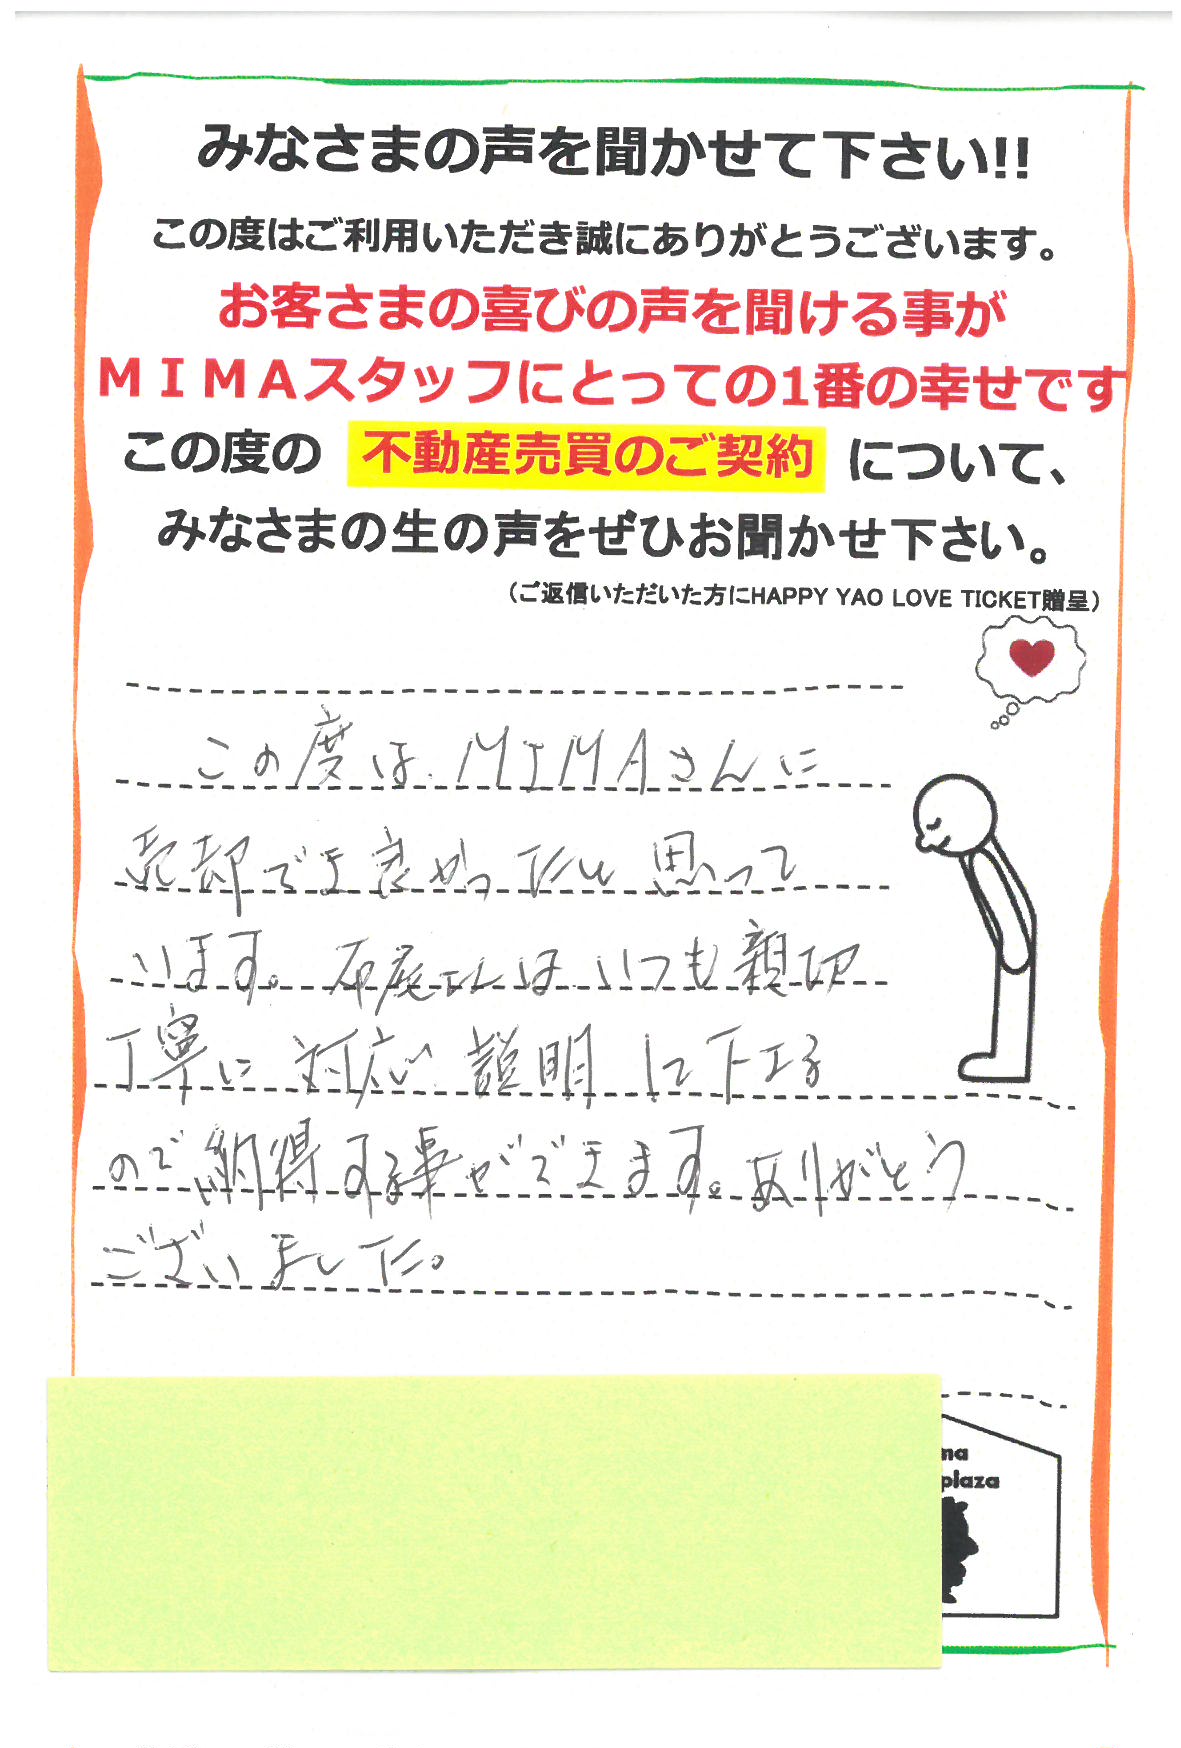 みなさまの声を聞かせて下さい!!
この度はご利用いただき誠にありがとうございます。
お客さまの喜びの声を聞ける事が
MIMAスタッフにとっての1番の幸せです
この度の 不動産売買のご契約 について、
みなさまの生の声をぜひお聞かせ下さい。
（ご返信いただいた方にHAPPY YAO LOVE TICKET贈呈）
この度は、MIMAさんに
売却でき良かったと思って
います。さんはいつも親切
丁寧に対応、説明して下さる
ので納得する事ができます。ありがとう
ございました。
ma
plaza